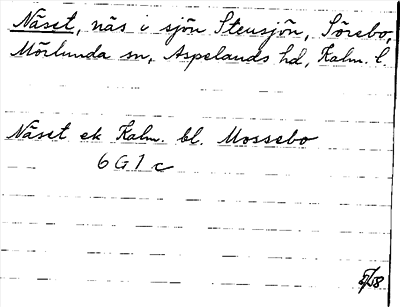 Näset, näs i sjön Stensjön, Sörebo,
Mörlunda sn, Aspelands hd, Kalm. l.
Näset ek Kalm. bl. Mossebo
6 G 1 c